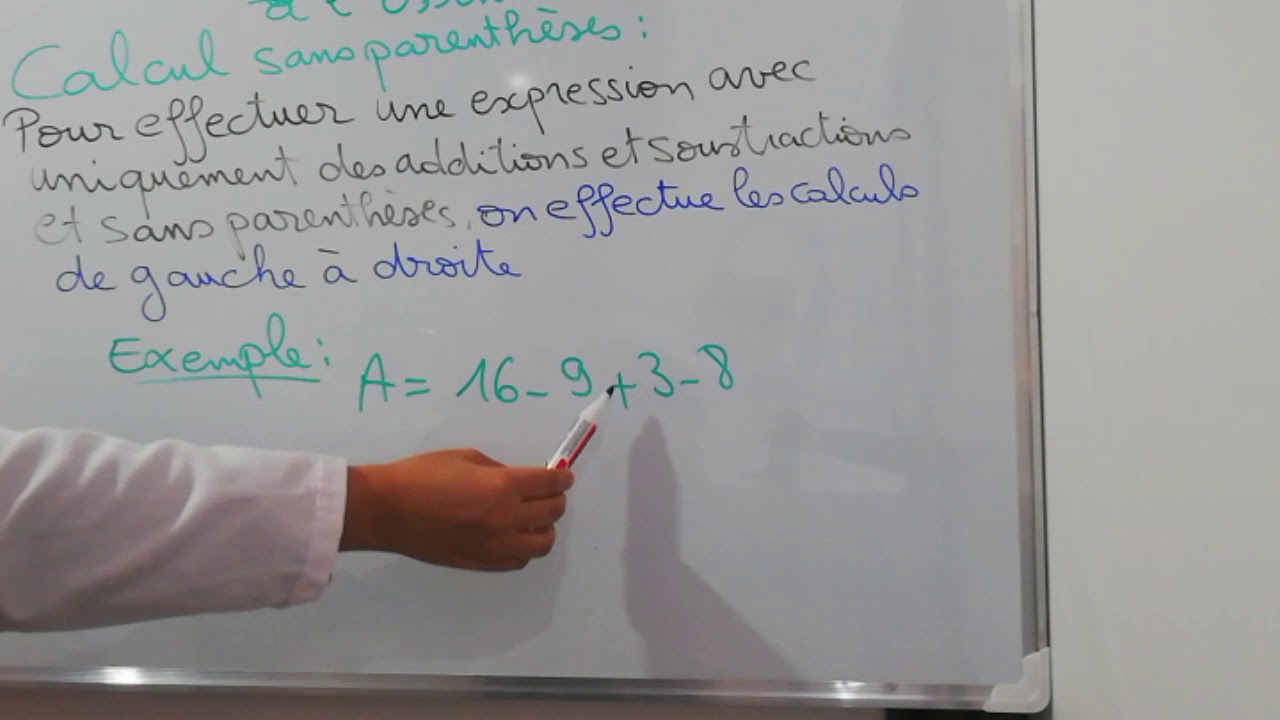 Calcul sans parenthèses :
Pour effectuer une expression avec
uniquement des additions et soustractions
et sans parenthèses, on effectue les calculs
de gauche à droite
Exemple : A = 16 - 9 + 3 - 8